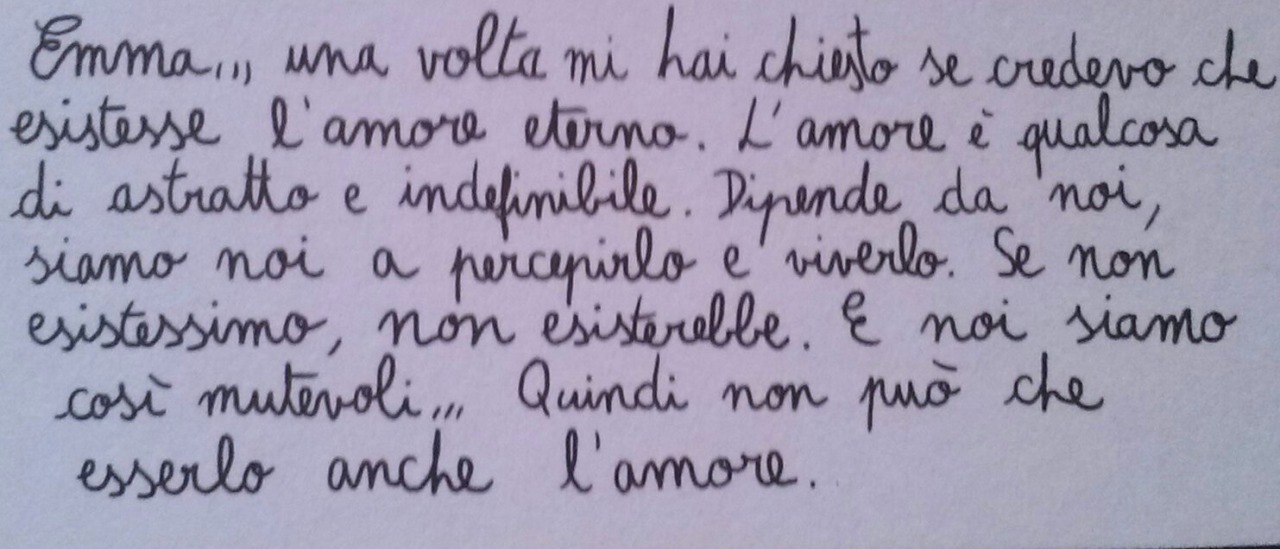 Emma... una volta mi hai chiesto se credevo che
esistesse l'amore eterno. L'amore è qualcosa
di astratto e indefinibile. Dipende da noi,
siamo noi a percepirlo e viverlo. Se non
esistessimo, non esisterebbe. E noi siamo
così mutevoli... Quindi non può che
esserlo anche l'amore.